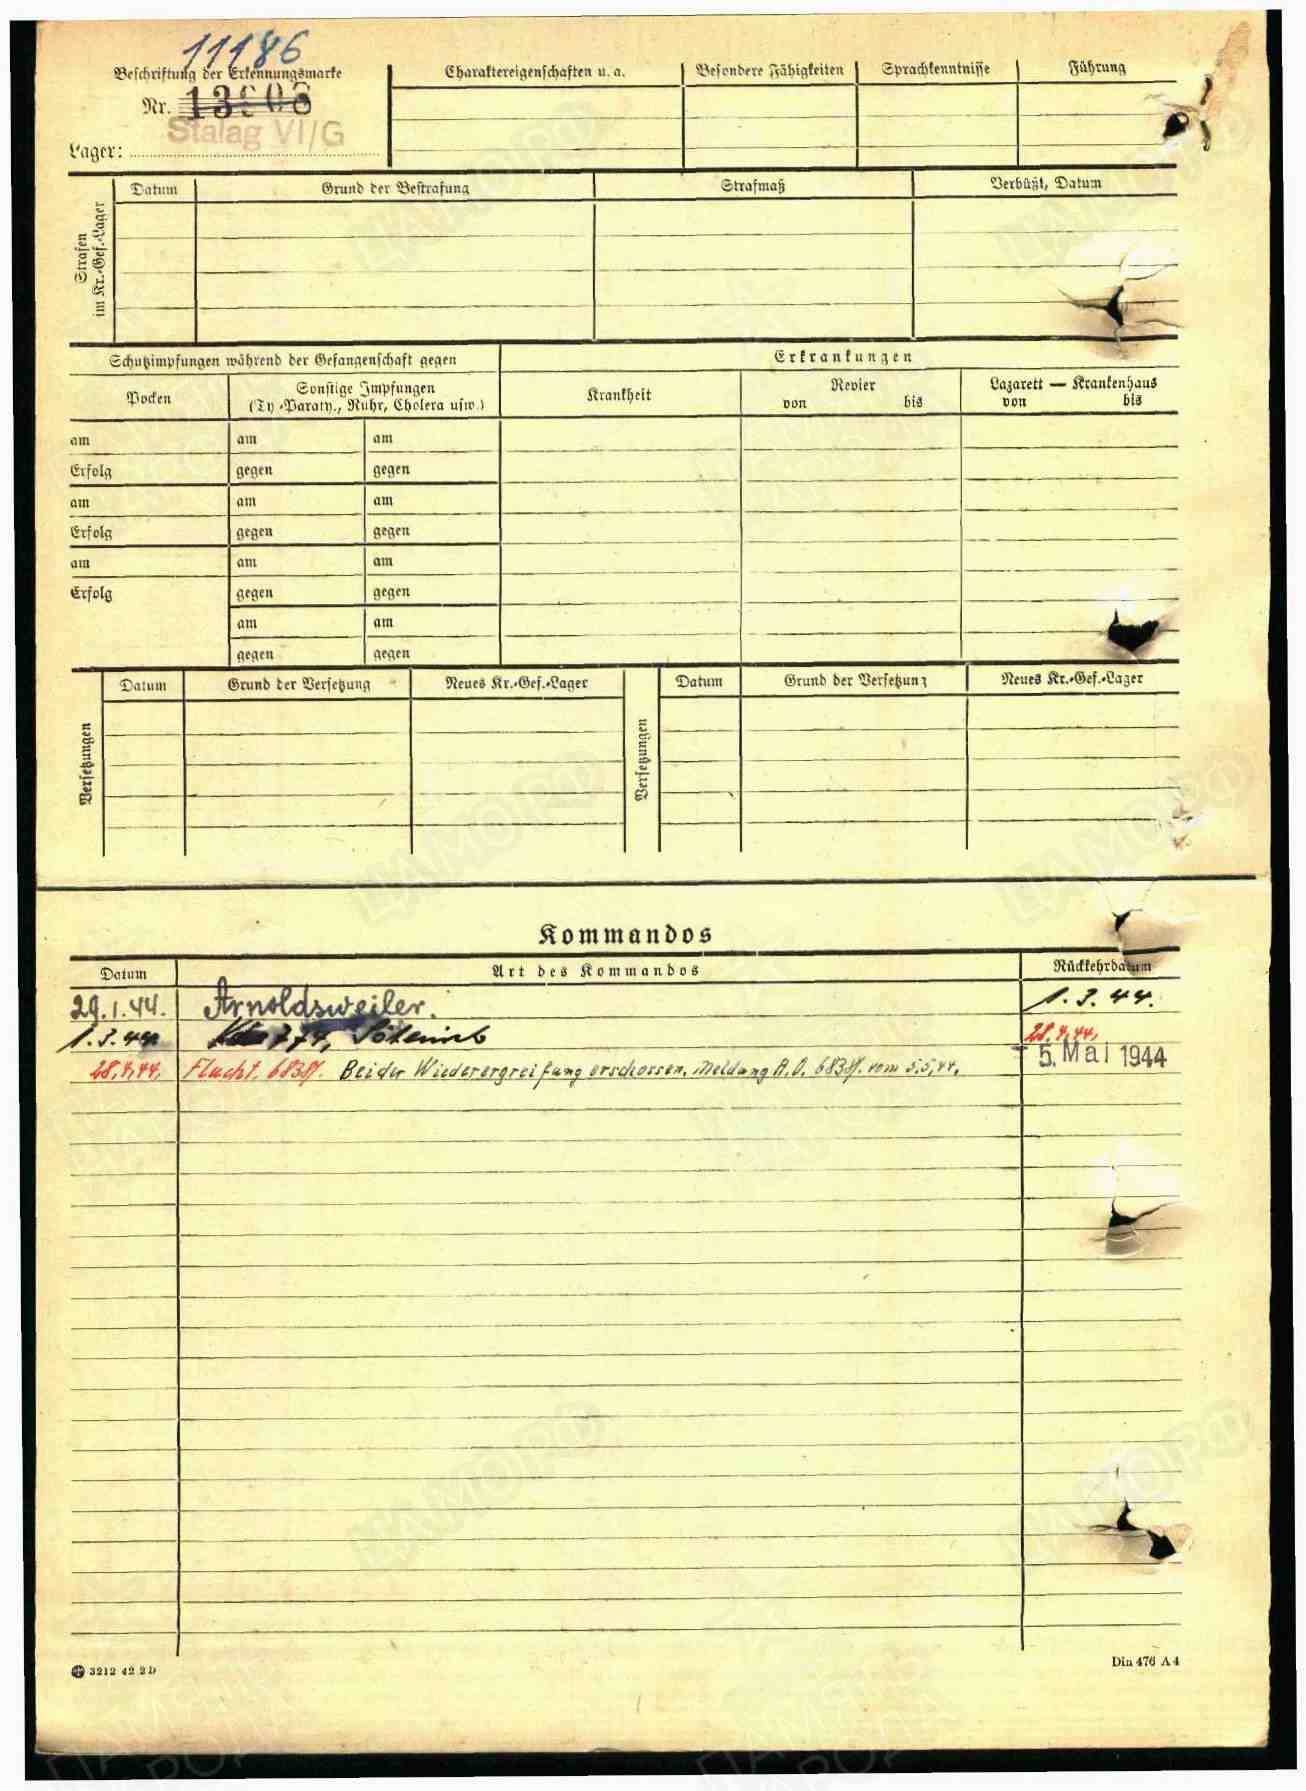 11186
Beschriftung der Erkennungsmarke
Nr. 13908
Stalag VI/G
Lager:
Charaktereigenschaften u. a.
Besondere Fähigkeiten
Sprachkenntnisse
Führung
Strafen
im Kr.-Gef.-Lager
Datum
Grund der Bestrafung
Strafmaß
Verbüßt, Datum
Schutzimpfungen während der Gefangenschaft gegen
Erkrankungen
Pocken
Sonstige Impfungen
(Ty.-Paraty., Ruhr, Cholera usw.)
Krankheit
Revier
von bis
Lazarett — Krankenhaus
von bis
am am am
Erfolg gegen gegen
am am am
Erfolg gegen gegen
am am am
Erfolg gegen gegen
am am
gegen gegen
Versetzungen
Datum
Grund der Versetzung
Neues Kr.-Gef.-Lager
Versetzungen
Datum
Grund der Versetzung
Neues Kr.-Gef.-Lager
Kommandos
Datum
Art des Kommandos
Rückkehrdatum
29.1.44. Arnoldsweiler. 1.3.44.
1.3.44 774, 28.4.44,
28.4.44. Flucht. Bei der Wiederergreifung erschossen. Meldung A.O. vom 5.5.44. 5. Mai 1944
3212 42 2D
Din 476 A4
ЦАМО РФ